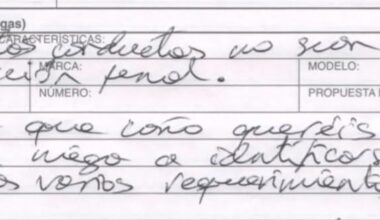 gas)
CARACTERÍSTICAS:
os conductas no sean
MARCA: MODELO:
ción penal.
NÚMERO: PROPUESTA
que coño queréis
niego a identificar
os varios requerimient